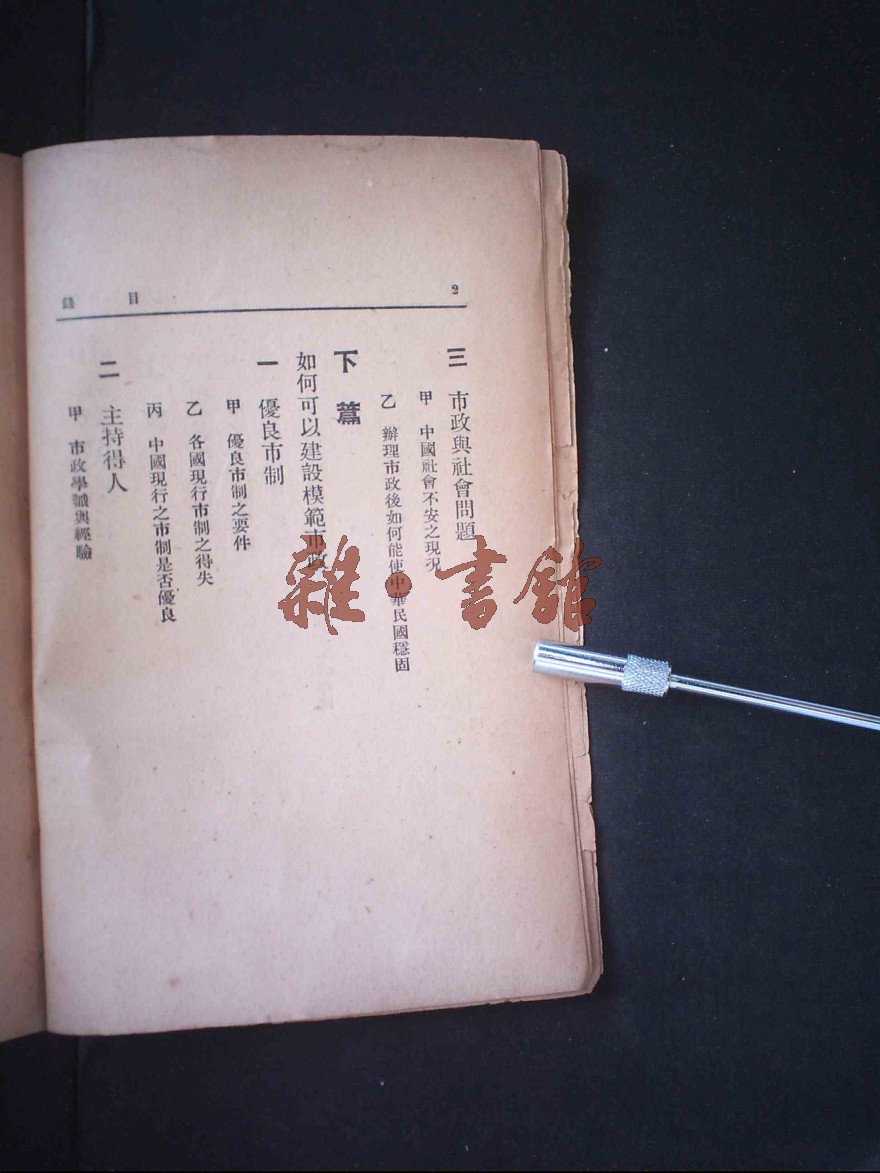 2
目錄
三 市政與社會問題
甲 中國社會不安之現況
乙 辦理市政後如何能使中華民國穩固
下篇
如何可以建設模範市政
一 優良市制
甲 優良市制之要件
乙 各國現行市制之得失
丙 中國現行之市制是否優良
二 主持得人
甲 市政學識與經驗
雜·書館